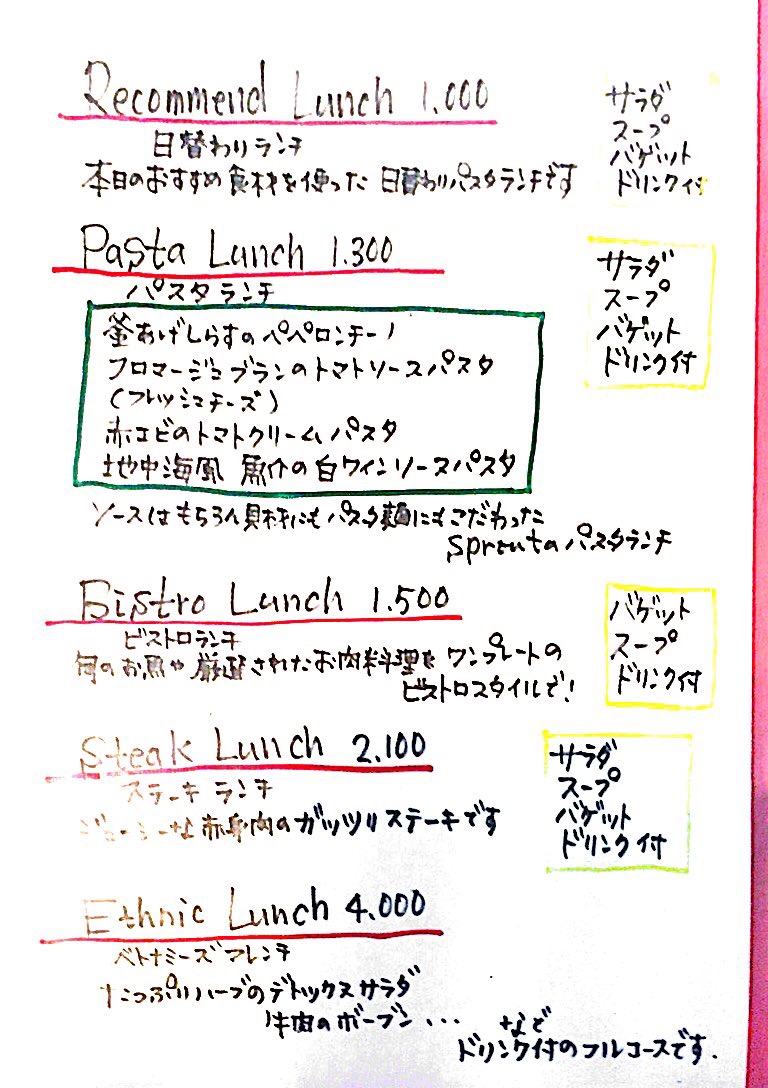 Recommend Lunch 1.000
日替わりランチ
本日のおすすめ食材を使った 日替わりパスタランチです
サラダ
スープ
バゲット
ドリンク付
Pasta Lunch 1.300
パスタランチ
釜あげしらすのペペロンチーノ
フロマージュブランのトマトソースパスタ
(フレッシュチーズ)
赤エビのトマトクリームパスタ
地中海風 魚介の白ワインソースパスタ
サラダ
スープ
バゲット
ドリンク付
ソースはもちろん具材にもパスタ麺にもこだわった
パスタランチ
Bistro Lunch 1.500
ビストロランチ
旬のお魚や厳選されたお肉料理を ワンプレートの
ビストロスタイルで!
バゲット
スープ
ドリンク付
Steak Lunch 2.100
ステーキランチ
ジューシーな赤身肉のガッツリステーキです
サラダ
スープ
バゲット
ドリンク付
Ethnic Lunch 4.000
ベトナミーズフレンチ
たっぷりハーブのデトックスサラダ
牛肉の ... など
ドリンク付のフルコースです.